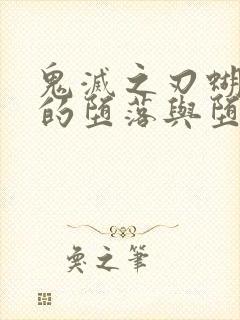 鬼滅之刃蝴
的墮落與墮
奐之筆